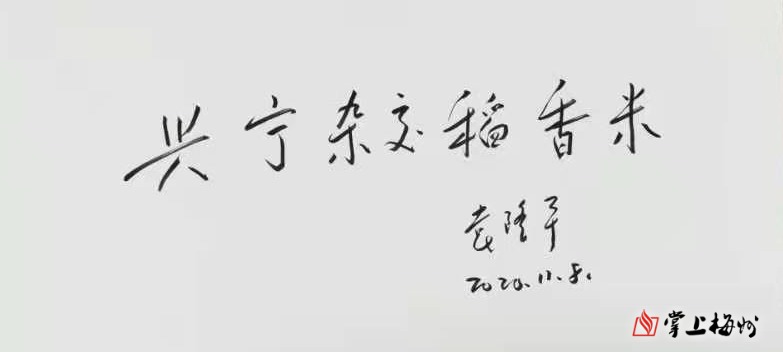 兴宁杂交稻香米
袁隆平
2020.11.8.
掌上梅州